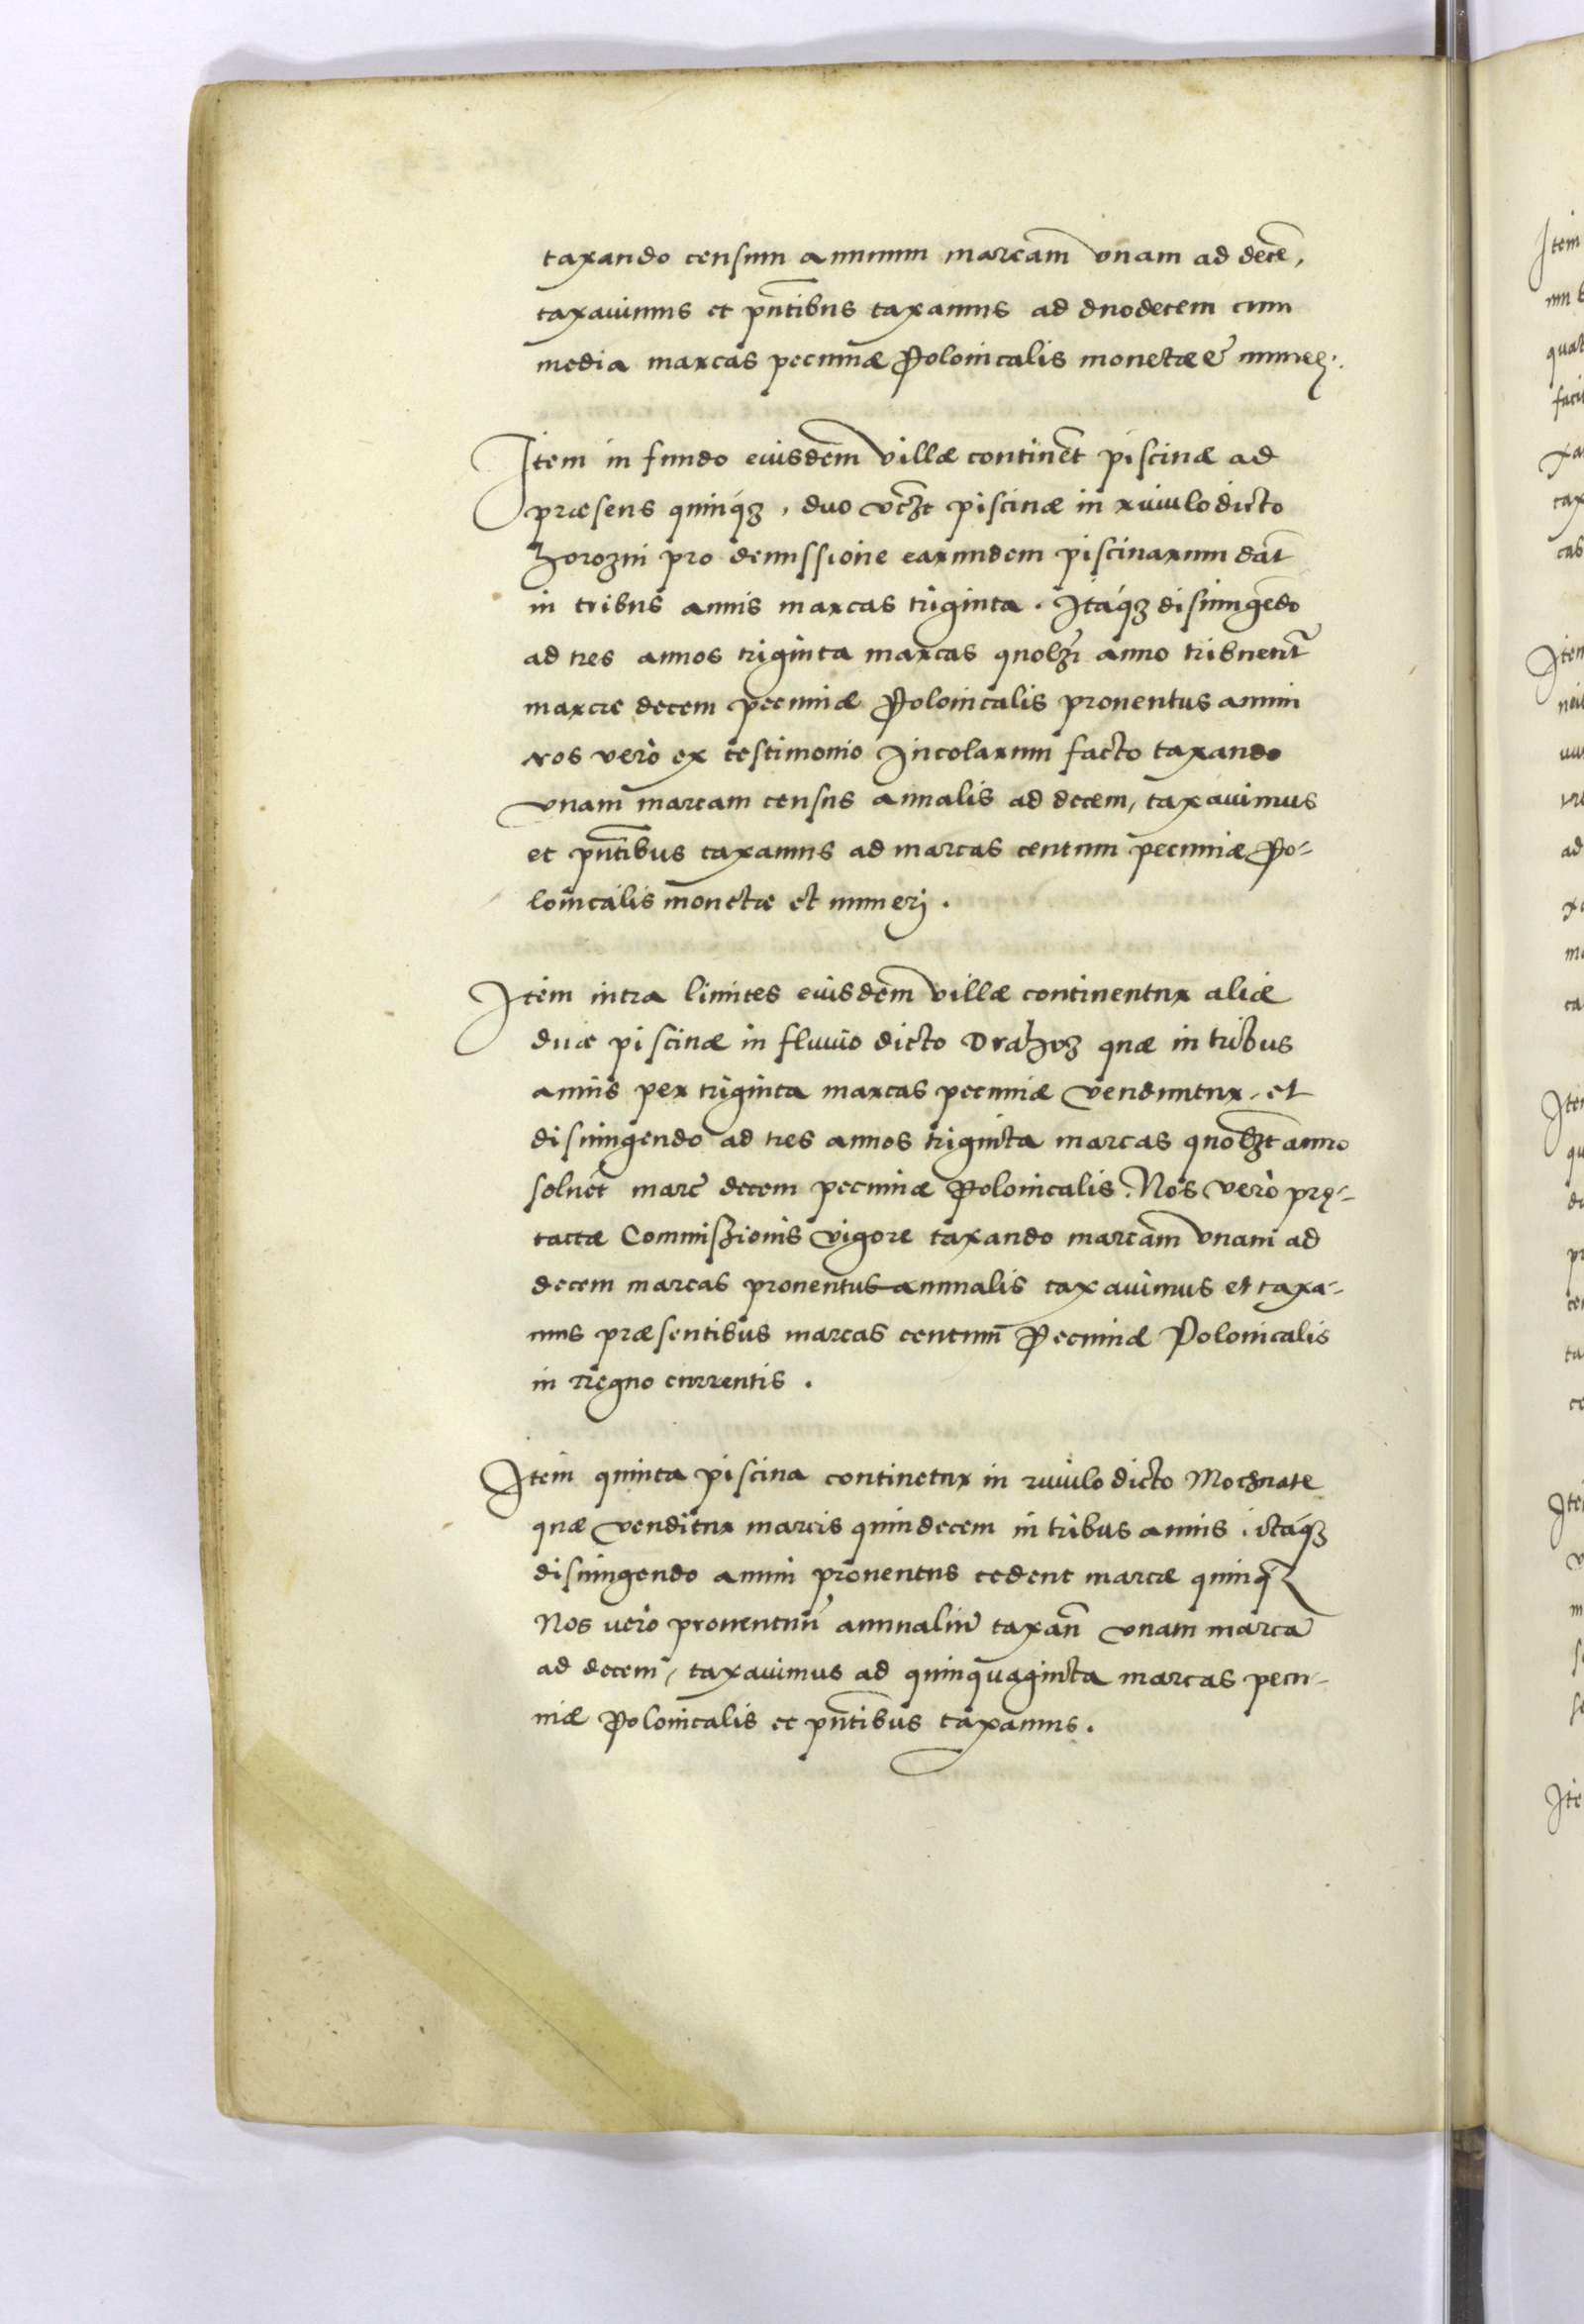 taxando censum annuum marcam̄ vnam ad decē,
taxauimus et pn̄tibus taxamus ad duodecem cum
media marcas pecuniæ Polonicalis monetæ & numeri.
Item in fundo eiusdem̄ villæ continēt piscinæ ad
præsens quinqꝫ, duo vꝫt piscinæ in riuulo dicto
Zorozni pro demissione earundem piscinarum dāt
in tribus annis marcas triginta. Itáqꝫ disiungēdo
ad tres annos triginta marcas quolꝫt anno tribuerūt
marcæ decem pecuniæ Polonicalis prouentus annui
Nos verò ex testimonio Incolarum facto taxando
vnam marcam census annalis ad decem, taxauimus
et pn̄tibus taxamus ad marcas centum pecuniæ Po-
lonicalis monetæ et numeri.
Item intra limites eiusdem̄ villæ continentur aliæ
duæ piscinæ in fluuio dicto Drahoz quæ in tribus
annis per triginta marcas pecuniæ venduntur, et
disiungendo ad tres annos triginta marcas quolꝫt anno
soluēt marē decem pecuniæ Polonicalis. Nos verò prę-
tactæ Commissionis vigore taxando marcam̄ vnam ad
decem marcas prouentus annualis taxauimus et taxa-
mus præsentibus marcas centum̄ Pecuniæ Polonicalis
in Regno currentis.
Item quinta piscina continetur in riuulo dicto Mochnate
quæ venditur marcis quindecem in tribus annis. itáqꝫ
disiungendo annui prouentus cedent marcæ quinqꝫ
Nos uerò prouentum̄ annualiū taxan̄ vnam marcā
ad decem, taxauimus ad quinquaginta marcas pecu-
niæ Polonicalis et pn̄tibus taxamus.